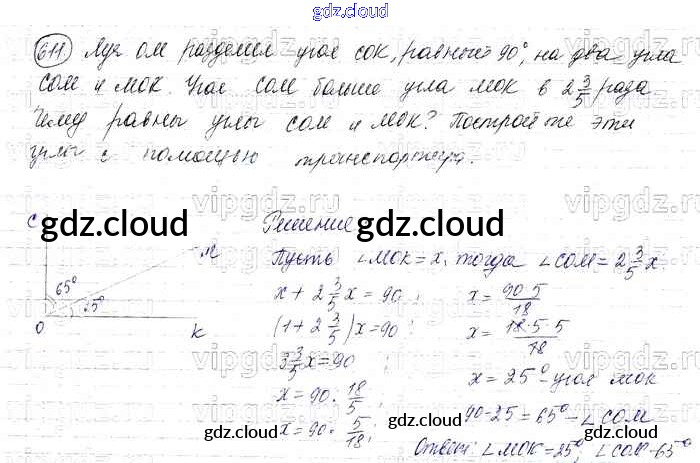 gdz.cloud
611 Луч ОМ разделил угол СОК, равный 90°, на два угла
СОМ и МОК. Угол СОМ больше угла МОК в 2 3/5 раза
Чему равны углы СОМ и МОК? Постройте эти
углы с помощью транспортира.
C
gdz.cloud
M
65°
25°
O
K
Решение
gdz.cloud
Пусть ∠МОК = x, тогда ∠СОМ = 2 3/5 x.
x + 2 3/5 x = 90
(1 + 2 3/5) x = 90
3 3/5 x = 90
x = 90 : 18/5
x = 90 · 5/18
x = 90·5/18
x = 18·5·5/18
x = 25° - угол МОК
90-25 = 65° - ∠СОМ
Ответ: ∠МОК = 25°; ∠СОМ = 65°
gdz.cloud
gdz.cloud
vipgdz.ru